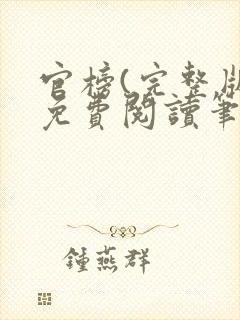 官榜(完整版
免費閱讀筆
鍾燕群